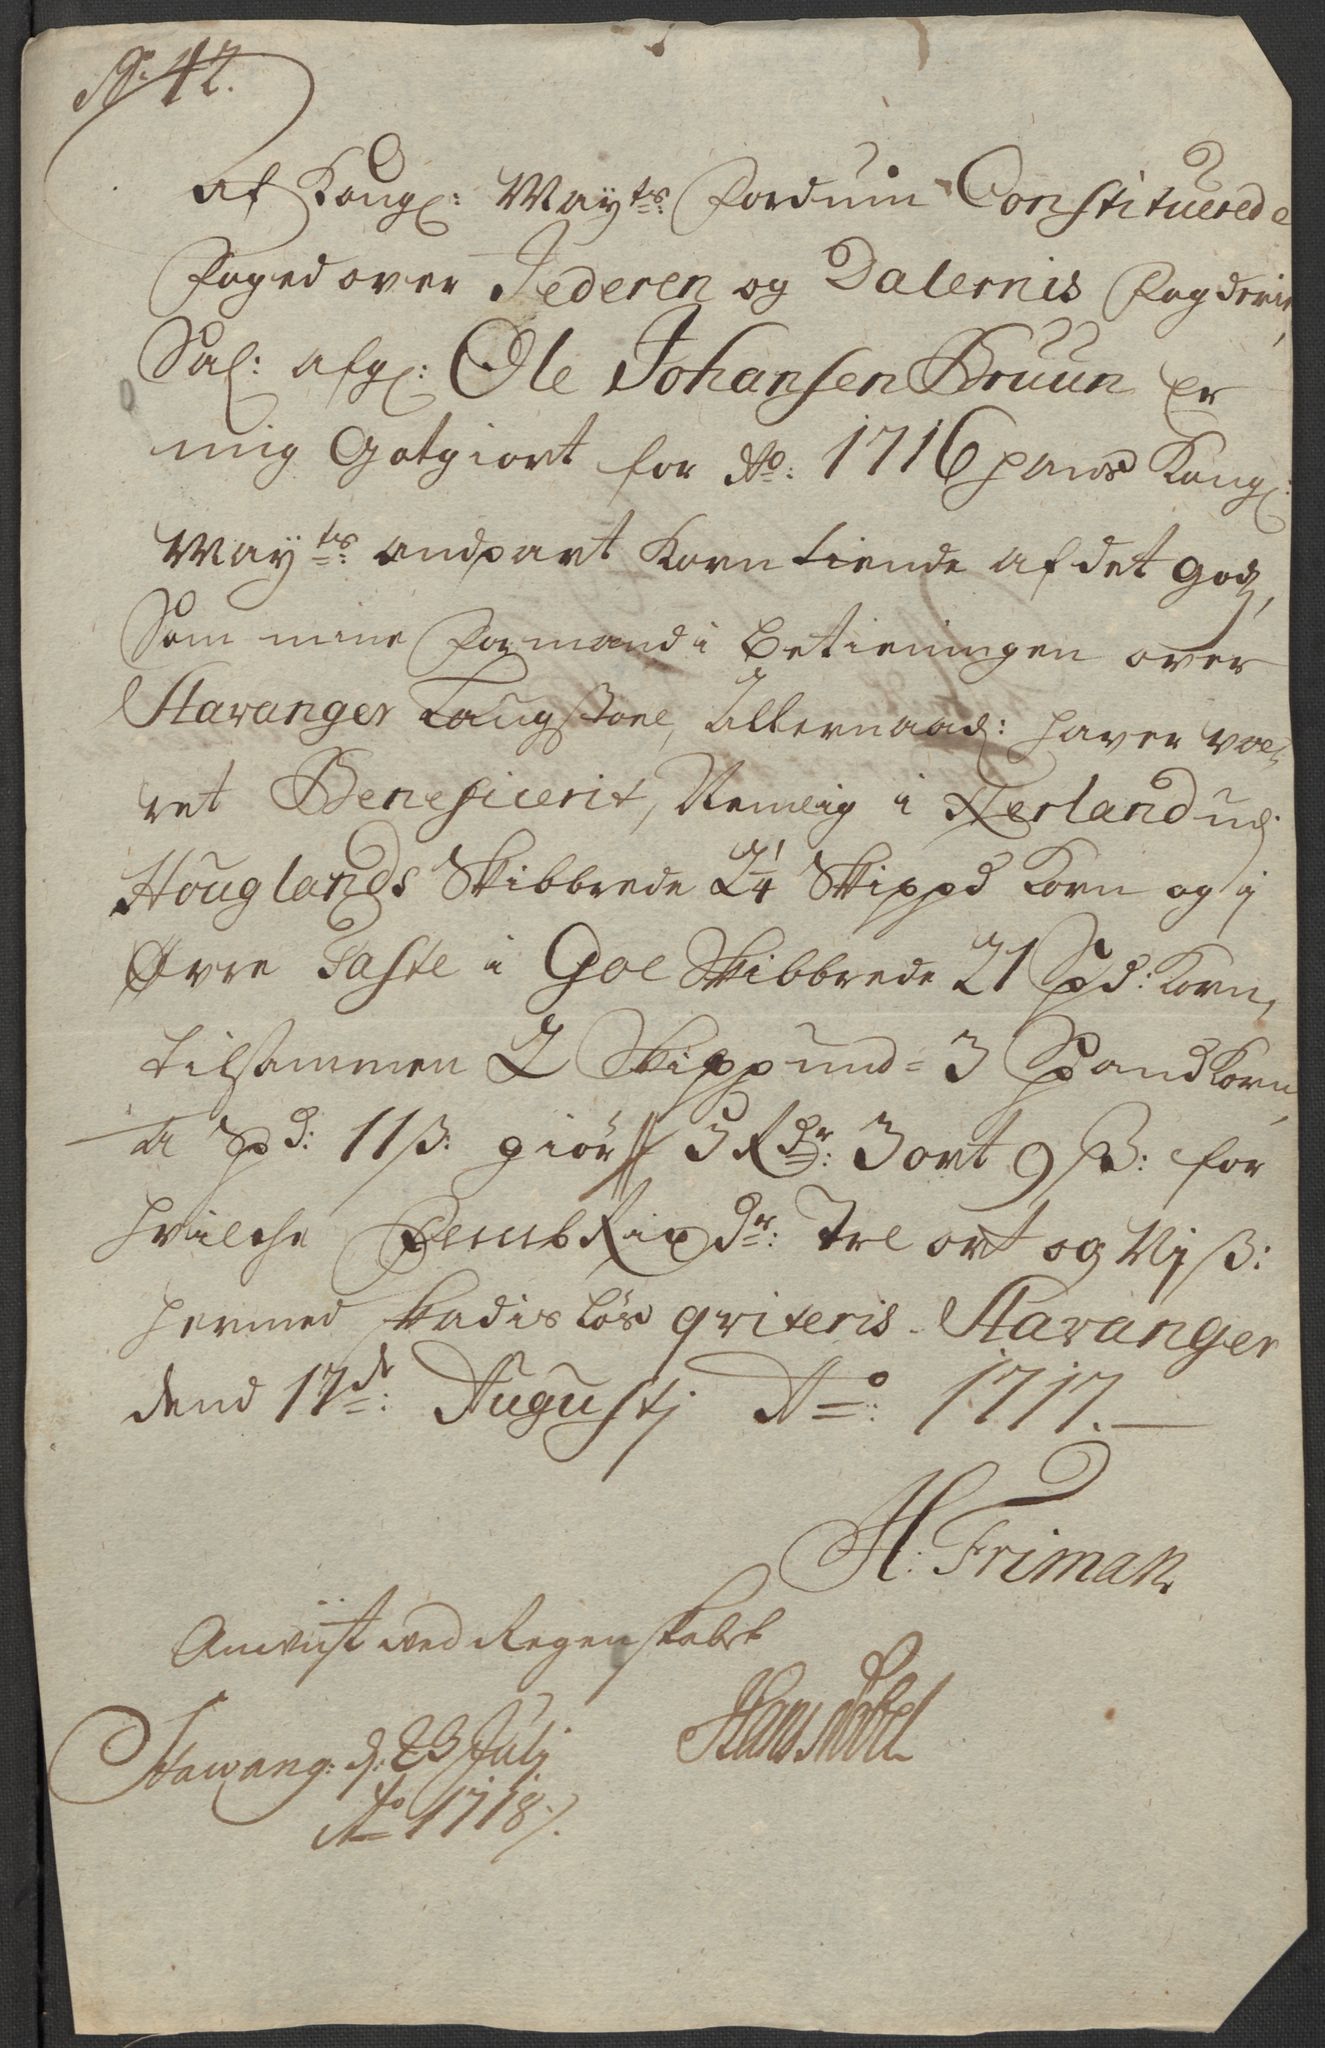 No: 42.
Af Kongl: Mayts: Fordum Constituerede
Foged over Jederen og Dalernis Fogderie,
Sal: afg: Ole Johansen Bruun Er
mig Gotgiort for Ao: 1716 hans Kongl:
Mayts: andpart Korn tiende af det godz,
Som mine Formænd i betieningen over
Stavanger Laugstoel, Allernaad: haver væ-
ret Beneficerit, Nemlig i Herland ud.
Houglands Skibbrede 2 1/4 Skippd Korn og i
Øvre Taste i Goe Skibbrede 21 Spd: Korn,
tilsammen 2 Skippund - 3 Spand Korn,
a Spd: 11 ß: giør // 5 Rdr: 3 ort 9 ß: for
hvilche Femb Rixdr: Tre ort og Nj ß:
hermed skadisløs qviteris. Stavanger
dend 17de: Augustj Ao: 1717.
H: Friman.
Anviist ved Regenskabet
Stavang: d: 23 Julj
Ao 1718 /.
Hans Nobel